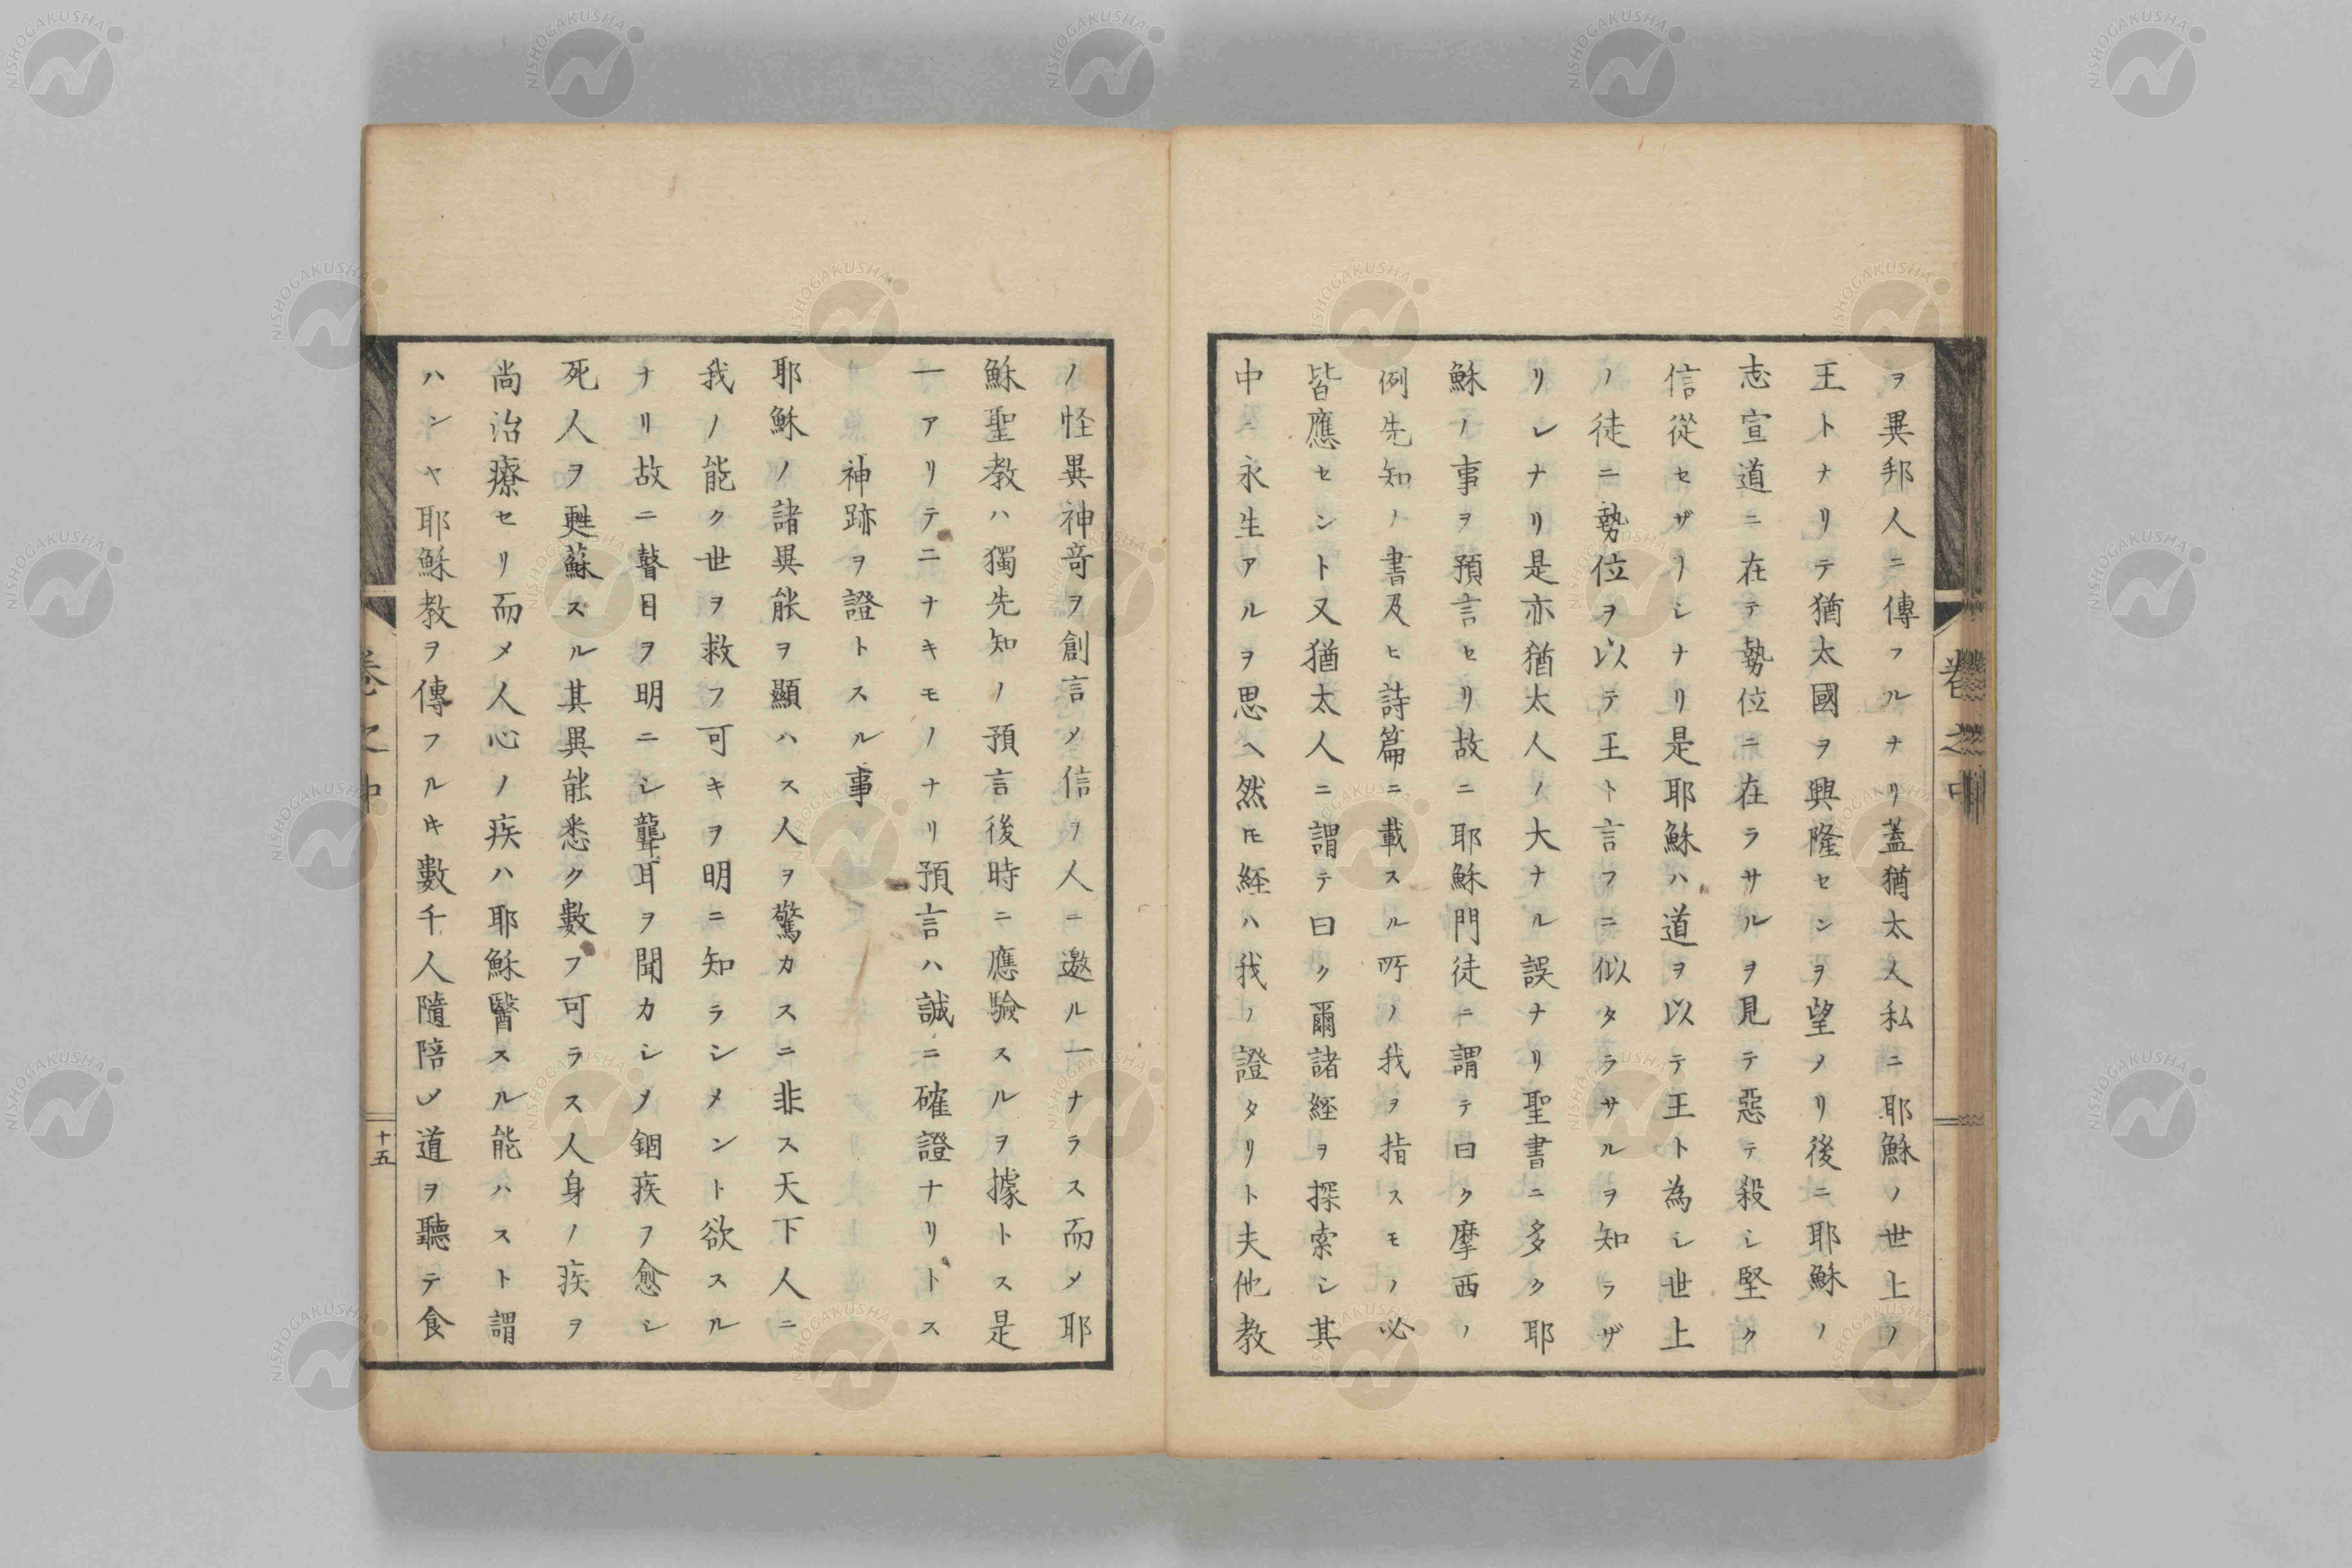 ヲ異邦人ニ傳フルナリ蓋猶太人私ニ耶穌ノ世上ノ
王トナリテ猶太國ヲ興隆センヲ望メリ後ニ耶穌ノ
志宣道ニ在テ勢位ニ在ラサルヲ見テ惡テ殺シ堅ク
信從セザリシナリ是耶穌ハ道ヲ以テ王ト為シ世上
ノ徒ニ勢位ヲ以テ王ト言フニ似タラサルヲ知ラザ
リシナリ是亦猶太人ノ大ナル誤ナリ聖書ニ多ク耶
穌ノ事ヲ預言セリ故ニ耶穌門徒ニ謂テ曰ク摩西ノ
例先知ノ書及ヒ詩篇ニ載スル所ノ我ヲ指スモノ必
皆應セント又猶太人ニ謂テ曰ク爾諸経ヲ探索シ其
中永生アルヲ思ヘ然㪽経ハ我ノ證タリト夫他教
ノ怪異神竒ヲ創言メ信ヲ人ニ邀ル一ナラス而メ耶
穌聖教ハ獨先知ノ預言後時ニ應驗スルヲ據トス是
一アリテ二ナキモノナリ預言ハ誠ニ確證ナリトス
神跡ヲ證トスル事
耶穌ノ諸異能ヲ顯ハス人ヲ驚カスニ非ス天下人ニ
我ノ能ク世ヲ救フ可キヲ明ニ知ラシメント欲スル
ナリ故ニ瞽目ヲ明ニシ聾耳ヲ聞カシメ錮疾フ愈シ
死人ヲ甦蘇スル其異能悉ク數フ可ラス人身ノ疾ヲ
尚治療セリ而メ人心ノ疾ハ耶穌醫スル能ハスト謂
ハンヤ耶穌教ヲ傳フルキ數千人隨陪メ道ヲ聽テ食
卷之中
卷之中
十五
NISHOGAKUSHA